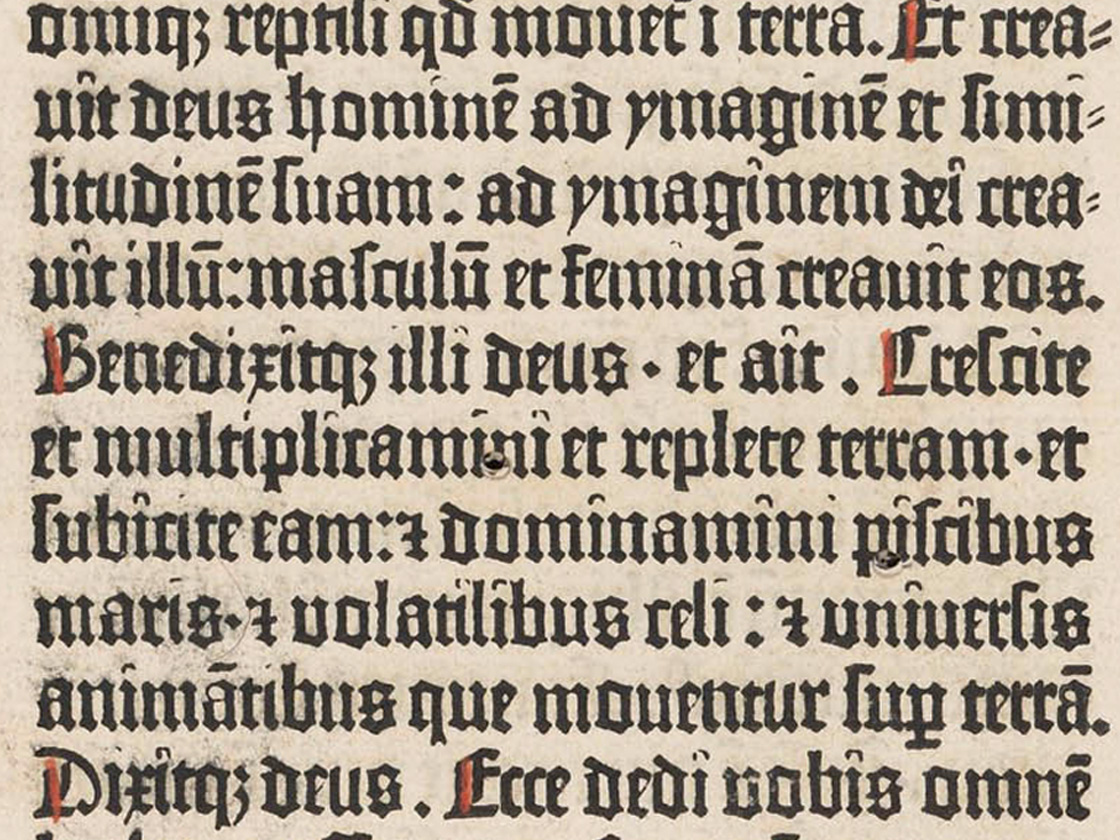 omniq́; reptili qď mouet̄ ī terra. Et crea⸗
uit deus hominē ad ymaginē et simi⸗
litudinē suam : ad ymaginem dei crea⸗
uit illū: masculū et feminā creauit eos.
Benedixitq́; illi deus · et ait . Crescite
et multiplicamini et replete terram · et
subicite eam: ⁊ dominamini piscibus
maris · ⁊ uolatilibus celi : ⁊ uniuersis
animātibus que mouentur suꝑ terrā.
Dixitq́; deus . Ecce dedi uobis omnē